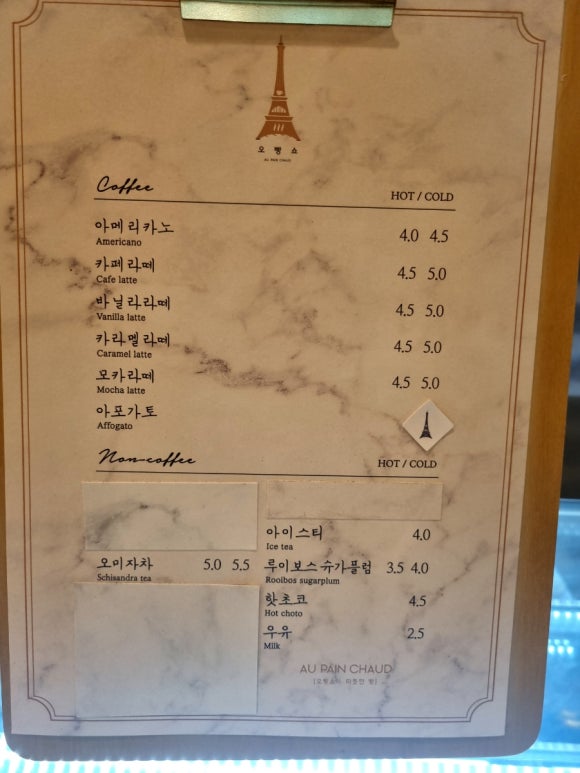 오 빵 쇼
AU PAIN CHAUD
Coffee
HOT / COLD
아메리카노 4.0 4.5
Americano
카페라떼 4.5 5.0
Cafe latte
바닐라라떼 4.5 5.0
Vanilla latte
카라멜라떼 4.5 5.0
Caramel latte
모카라떼 4.5 5.0
Mocha latte
아포가토
Affogato
Non-coffee
HOT / COLD
오미자차 5.0 5.5
Schisandra tea
아이스티 4.0
Ice tea
루이보스 슈가플럼 3.5 4.0
Rooibos sugarplum
핫초코 4.5
Hot choto
우유 2.5
Milk
AU PAIN CHAUD
[오빵쇼 : 따뜻한 빵]